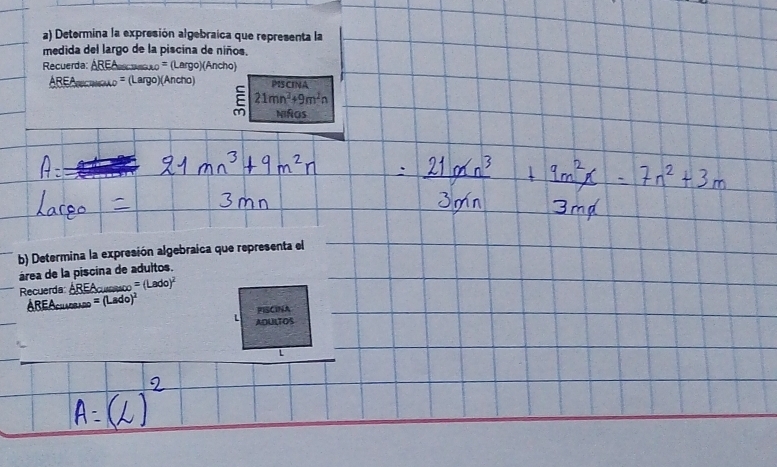 a) Determina la expresión algebraica que representa la
medida del largo de la piscina de niños.
Recuerda: ÁREA = (Largo)(Ancho)
ÁREA = (Largo)(Ancho)
3mn
PISCINA
21mn³+9m²n
NIÑOS
A = 21 mn³ + 9m²n = 21 mn³ + 9m²n = 7n² + 3m
Largo = 3mn 3mn 3mn
b) Determina la expresión algebraica que representa el
área de la piscina de adultos.
Recuerda: ÁREA CUADRADO = (Lado)²
ÁREA CUADRADO = (Lado)²
PISCINA
L ADULTOS
L
A = (L)²